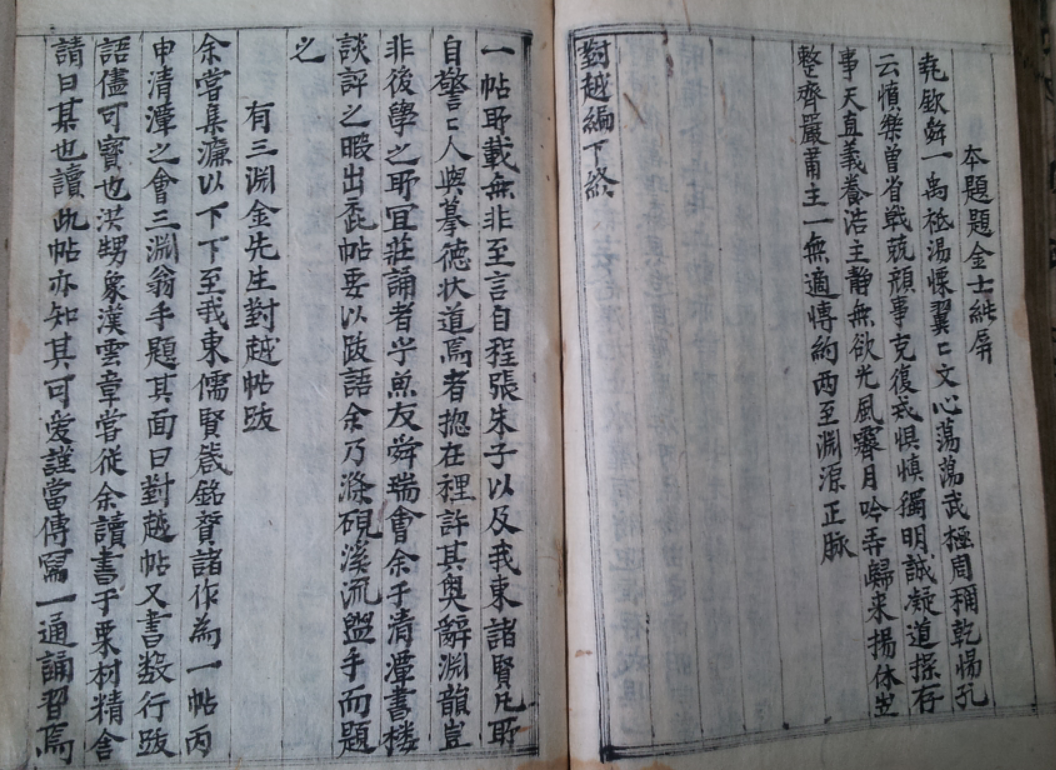 本題題金士純屏
堯欽舜一禹祗湯慄翼〻文心蕩蕩武極周稱乾惕孔
云愼樂曾省戰兢顔事克復戒惧愼獨明誠凝道操存
事天直義養浩主静無欲光風霽月吟弄歸来揚休坐
整齊嚴肅主一無適博約两至淵源正脉
對越編下終
一帖所載無非至言自程張朱子以及我東諸賢凡所
自警〻人與摹德状道焉者揔在裡許其奥辭淵韻豈
非後學之所宜莊誦者乎魚友舜瑞會余于清潭書樓
談評之暇出兹帖要以跋語余乃滌硯溪流盥手而題
之
有三淵金先生對越帖跋
余嘗集濂以下下至我東儒賢箴銘賛諸作為一帖丙
申清潭之會三淵翁手題其面曰對越帖又書數行跋
語儘可寶也洪甥象漢雲章嘗從余讀書于栗村精舍
請曰某也讀此帖亦知其可愛謹當傳寫一通誦習焉